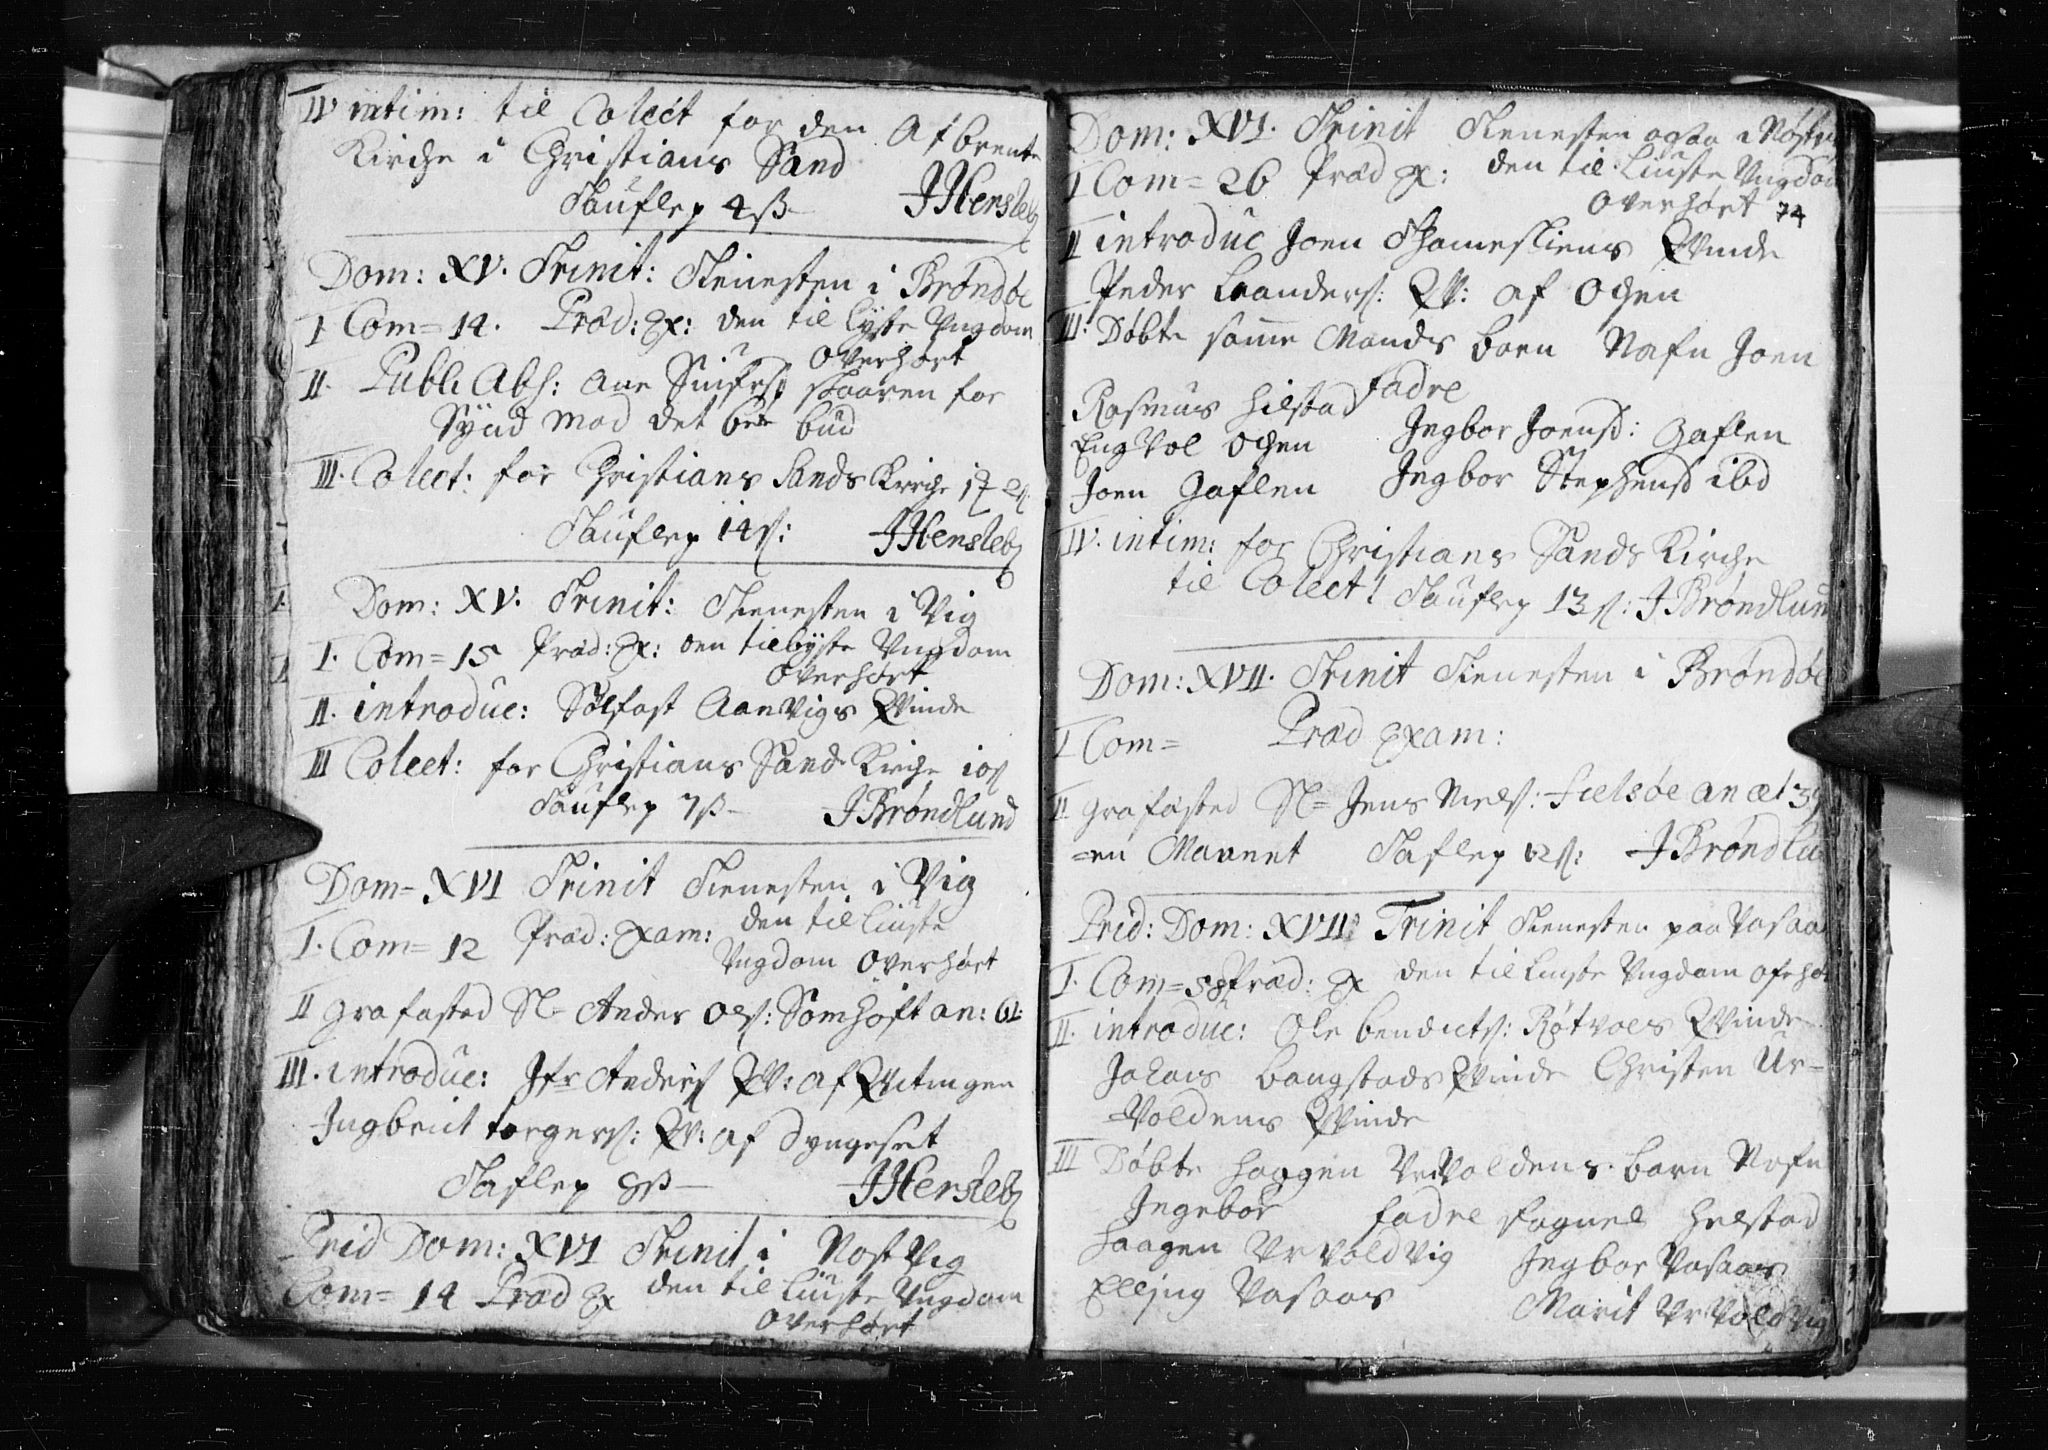 IV intim: til Colect for den Afbrente
Kirche i Christians Sand
Tauflep 4ß JHersleb
Dom: XV. Trinit: Tienesten i Brøndøe
I Com= 14. Præd: Ex: den til lyste Ungdom
overhørt
II. Publ: Abs: Ane skaaren for
Synd mod det 6te bud
III. Colect: for Christians Sands Kirche
Tauflep 14ß: JHersleb
Dom: XV. Trinit: Tienesten i Vig
I. Com= 15 Præd: Ex: den tillyste Ungdom
overhørt
II. introduc: Sølfast Aanvigs Qvinde
III Colect: for Christians Sands Kirche 10ß
Tauflep 7ß JBrøndlund
Dom= XVI Trinit Tienesten i Vig
I. Com= 12 Præd: Exam: den til liuste
Ungdom overhørt
II grafæsted Sl= Anders Ols: Somhøft an: 61:
III. introduc: Anders Qv: af
Ingbrict torgers: Qv: af Dyngeset
Taflep 8ß JHersleb
Prid Dom: XVI Trinit i Nost Vig
Com= 14 Præd Ex den til liuste Ungdom
overhørt
Dom: XVI. Trinit Tienesten ogsaa i
I Com= 26 Præd Ex: den til liuste Ungdom
overhørt 74
II introduc Joen Qvinde
Peder Leanders: Qv: af Ochen
III: Døbte samme Mands barn Nafn Joen
Fadre
Rasmus Hilstad
Engvol Ochen Ingbor Joensd: Gaflen
Joen Gaflen Ingbor Stephensd ibd
IV. intim: for Christians Sands Kirche
til Colect! Tauflep 13ß: JBrøndlund
Dom: XVII. Trinit Tienesten i Brøndøe
I Com= Præd Exam:
II grafæsted Sl= Jens Niels: an æt
=en Mannet Taflep 12ß: JBrøndlund
Prid: Dom: XVII: Trinit Tienesten paa Vasaas
I. Com=58 Præd: Ex den til liuste Ungdom
II. introduc: Ole bendicts: Røtvols Qvinde
bangstads Qvinde Christen Ur=
=Voldens Qvinde
III Døbte Haagen Urvoldens barn Nafn
Ingebor Fadre Fagnel Helstad
Haagen Urvoldvig Ingbor Vasaas
Elling Vasaas Marit Urvoldvig